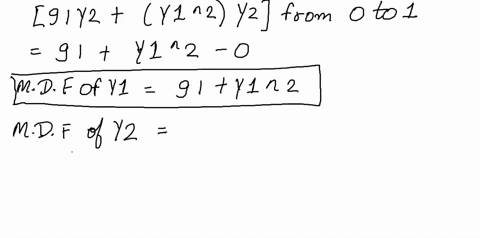 [91Y2 + (Y1^2) Y2] from 0 to 1
= 91 + Y1^2 - 0
M.D.F of Y1 = 91 + Y1^2
M.D.F of Y2 =